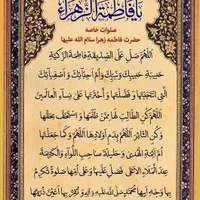 یا فاطمة الزهراء
صلوات خاصه
حضرت فاطمه زهرا سلام الله علیها
اَللّٰهُمَّ صَلِّ عَلَی الصِّدّیقَةِ فاطِمَةَ الزَّکِیَّةِ
حَبیبَةِ حَبیبِکَ وَنَبِیِّکَ وَاُمِّ اَحِبّآئِکَ وَاَصفِیآئِکَ
الَّتِی انتَجَبتَها وَفَضَّلتَها وَاختَرتَها عَلی نِسآءِ العالَمینَ
اَللّٰهُمَّ کُنِ الطّالِبَ لَها مِمَّن ظَلَمَها وَاستَخَفَّ بِحَقِّها
وَکُنِ الثّائِرَ اَللّٰهُمَّ بِدَمِ اَولادِها اَللّٰهُمَّ وَکَما جَعَلتَها
اُمَّ اَئِمَّةِ الهُدی وَحَلیلَةَ صاحِبِ اللِّوآءِ وَالکَریمَةَ
عِندَ المَلَاِ الاَعلی فَصَلِّ عَلَیها وَعَلی اُمِّها صَلوةً تُکرِمُ
بِها وَجهَ اَبیها مُحَمَّدٍ صَلَّی اللهُ عَلَیهِ وَآلِهِ وَتُقِرُّ بِها اَعیُنَ ذُرِّیَّتِها